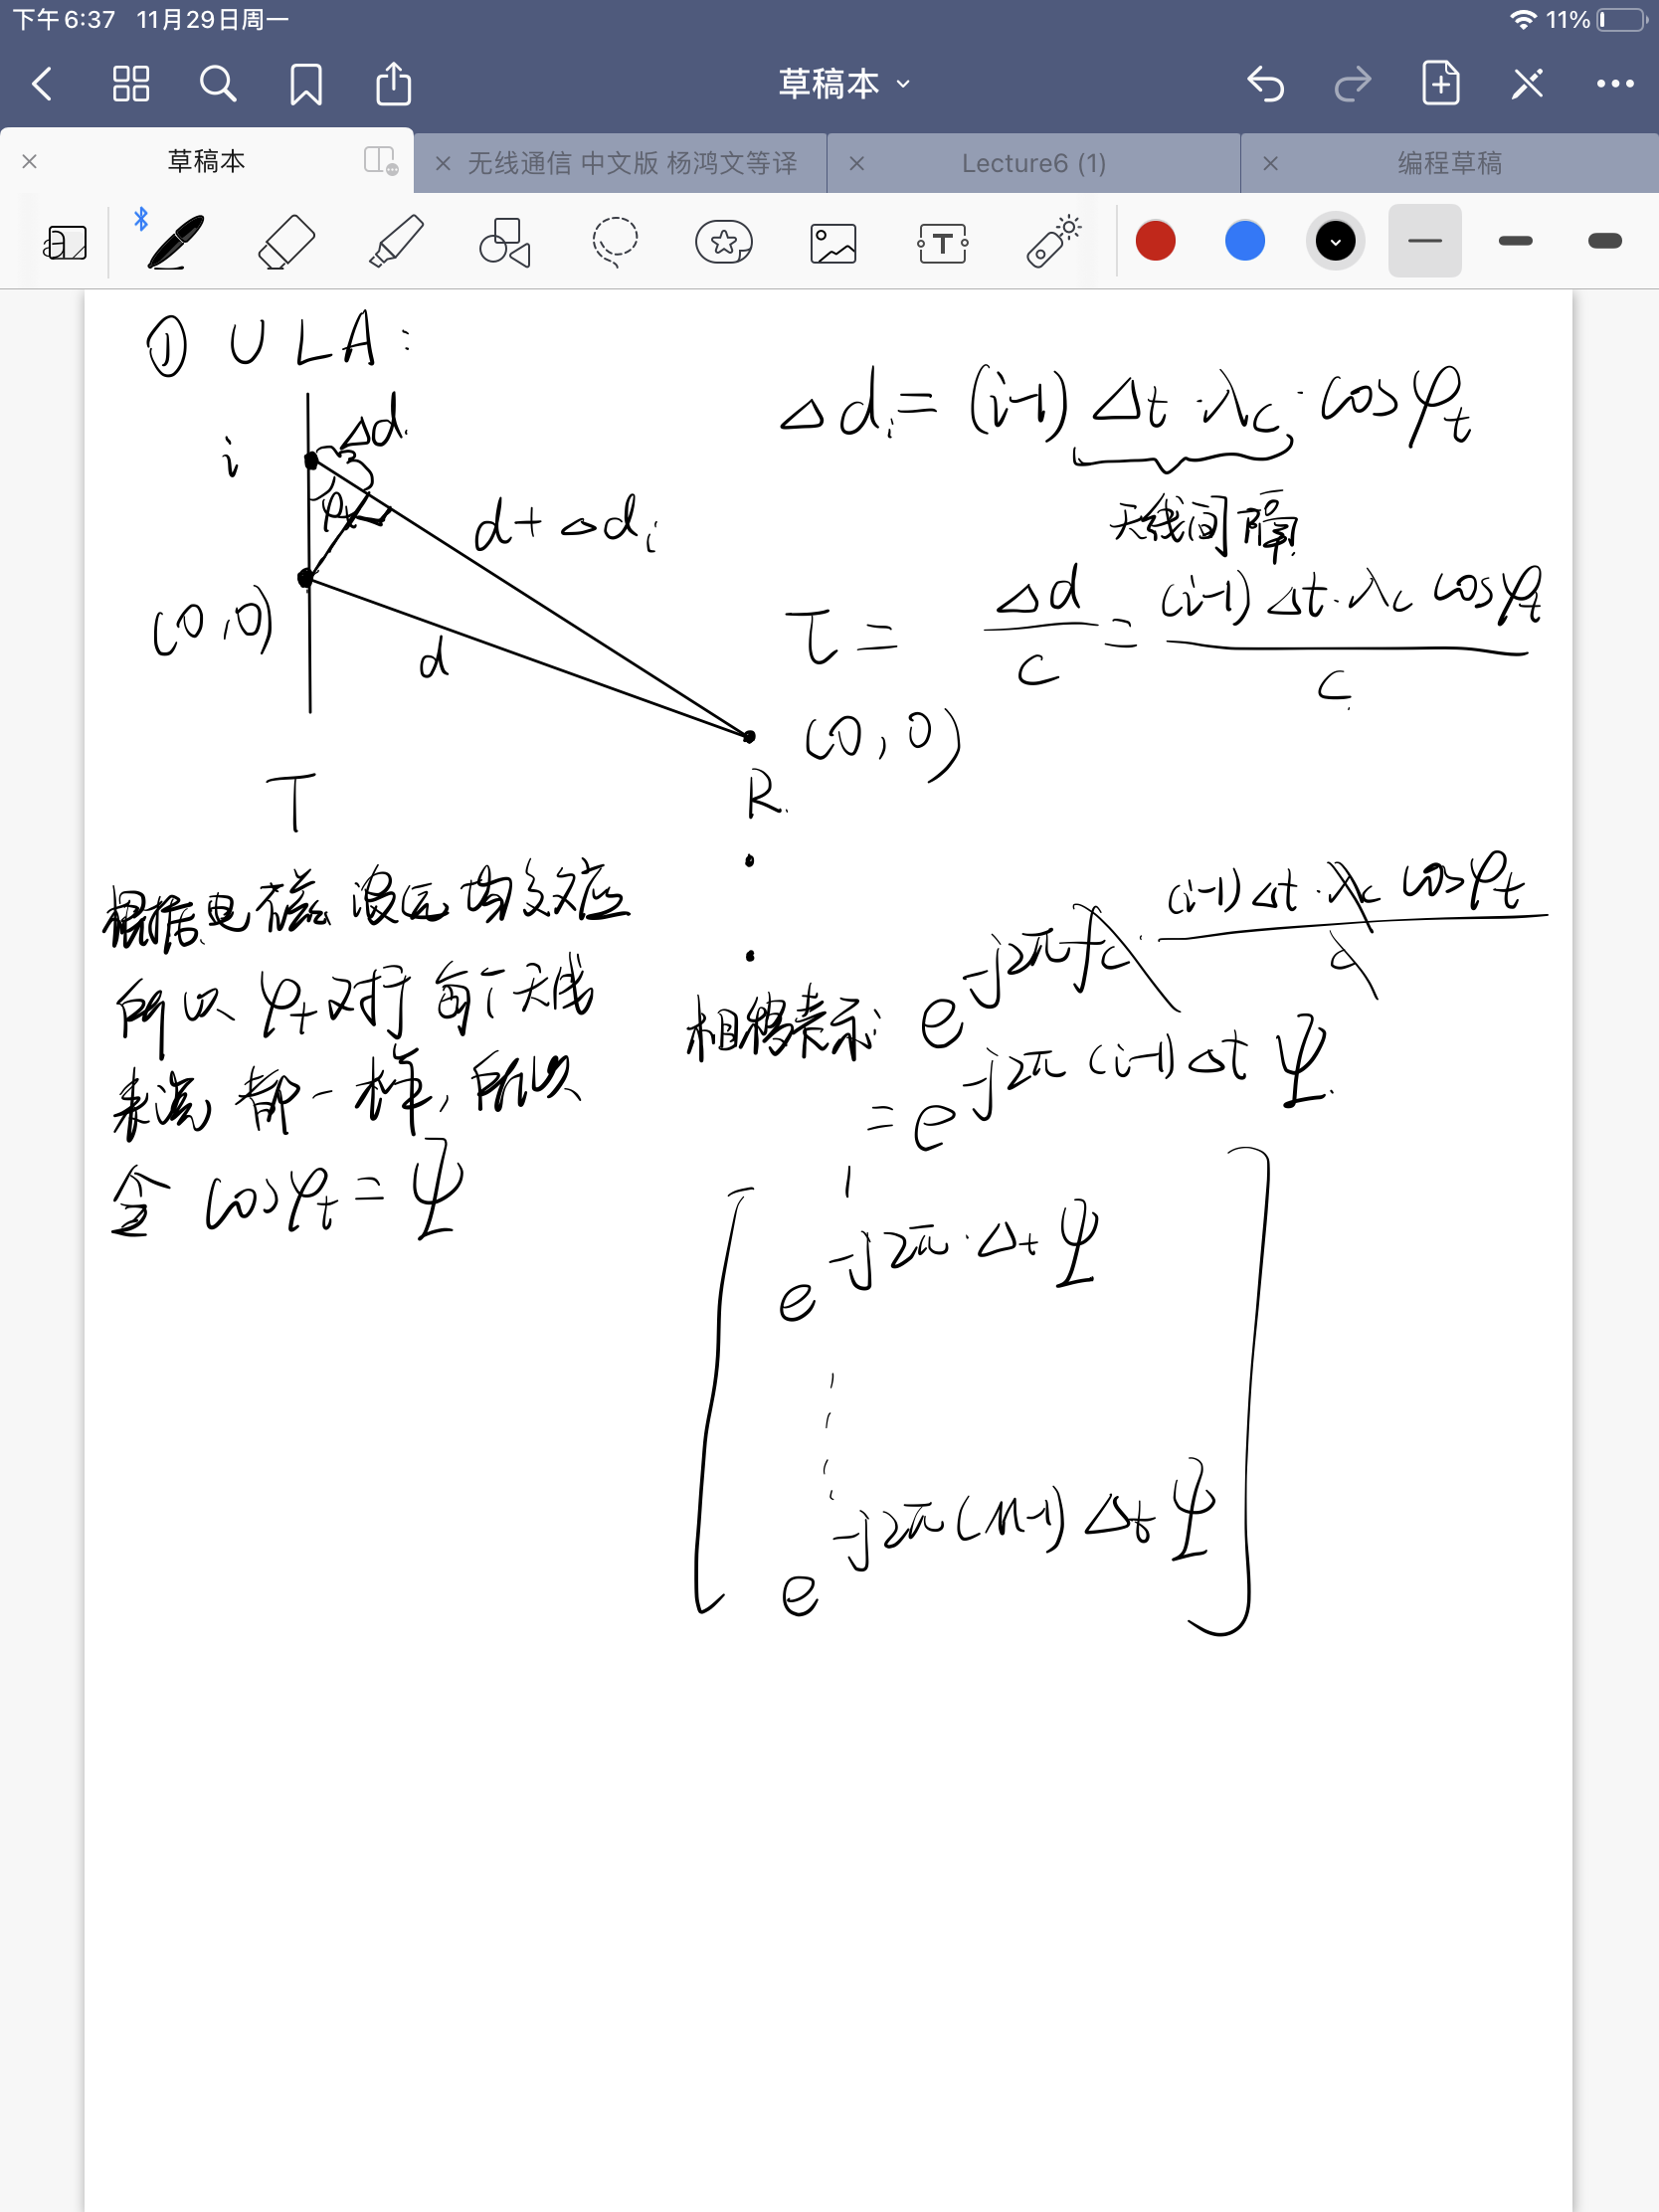 下午6:37 11月29日周一
11%
草稿本
草稿本
无线通信 中文版 杨鸿文等译
Lecture6 (1)
编程草稿
① ULA:
i
Δdᵢ
φt
d+Δdᵢ
(0,0)
d
T
R.
(0,0)
Δdᵢ = (i-1) Δt·λc·cosφt
天线间隔
τ = Δd/c = (i-1) Δt·λc cosφt / c
根据电磁波远场效应
所以 φt 对于每个天线
来说都一样, 所以
令 cosφt = Ψ
相移表示: e^{-j2πfc · (i-1) Δt·λc cosφt / c}
= e^{-j2π (i-1) Δt Ψ}
1
e^{-j2π·Δt Ψ}
e^{-j2π(n-1) Δt Ψ}